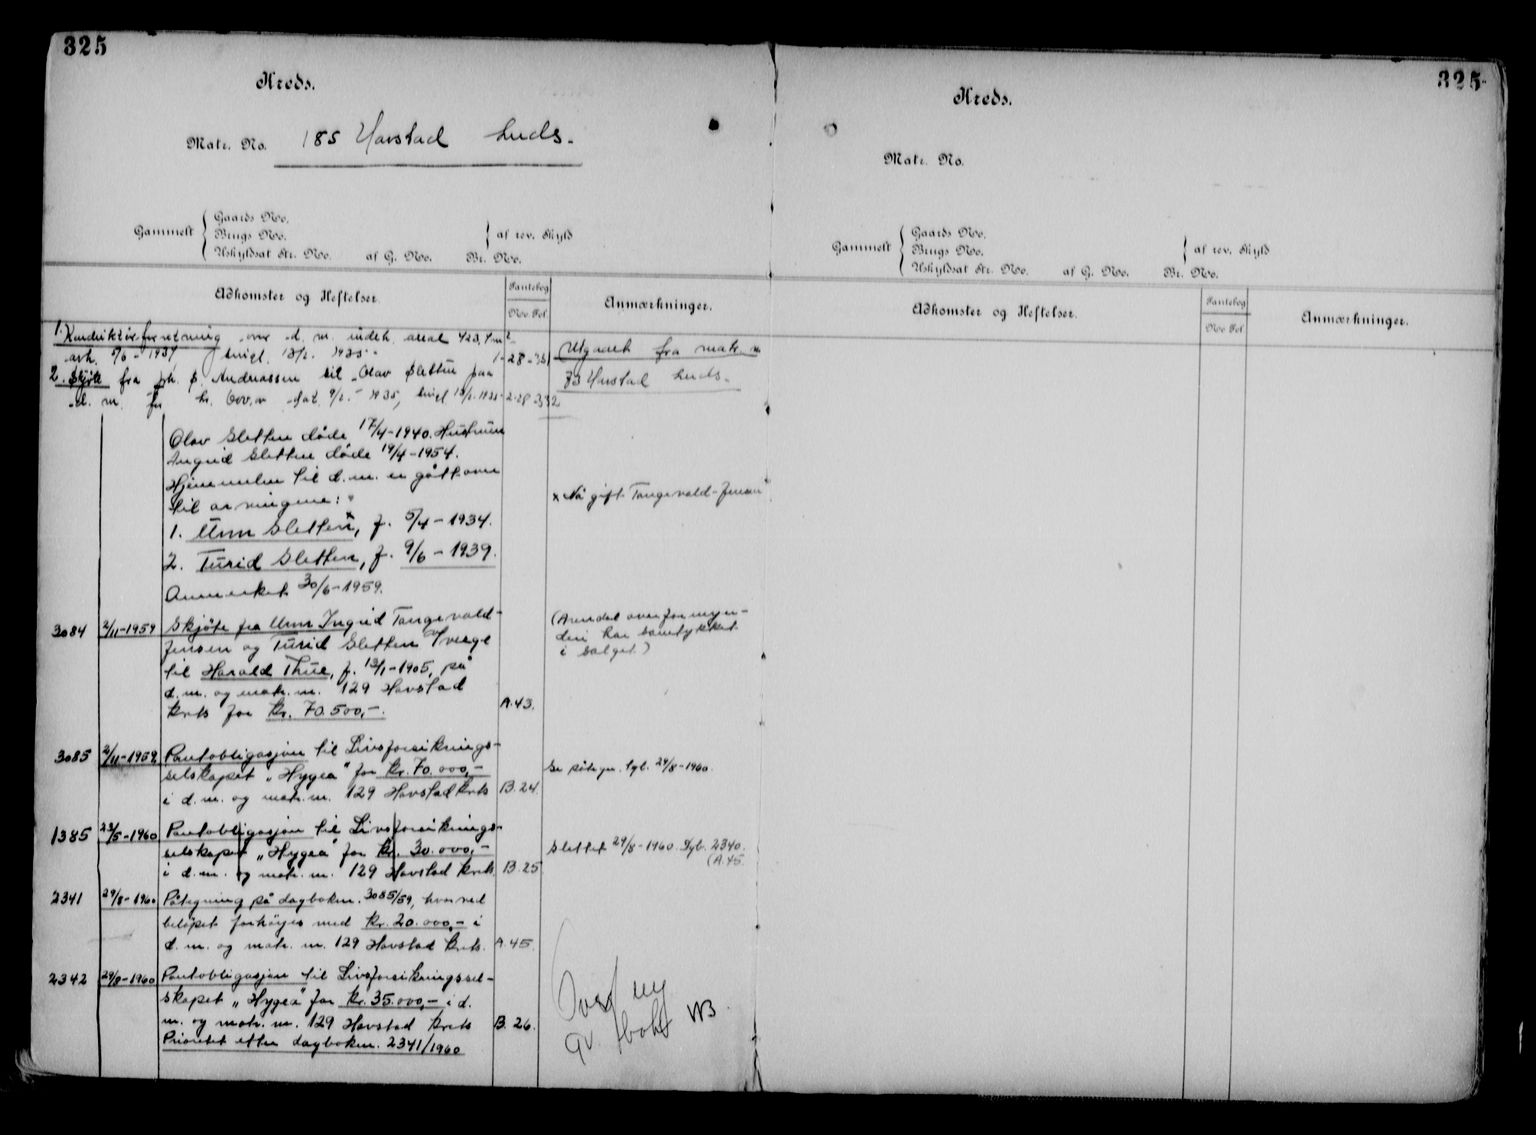 325
Kreds.
Matr. No. 185 Havstad kreds.
Gammelt { Gaards No.
Brugs No.
Uskyldsat Str. No. af G. No. Br. No.
} af rev. Skyld
Adkomster og Heftelser.
Pantebog
No. Fol.
Anmærkninger.
1. Konduktørforretning over d. m. indeh. areal 423,4 m²
avh. 1934 tingl. 1935. 1-28-351
Utgaaet fra matr. nr
73 Havstad kreds.
2. Skjøte fra Joh. S. Andreassen til Olav Sletten paa
d. m. for kr. dat. 1935, tingl. 1935 2-28-352
Olav Sletten døde 17/4-1940. Hustruen
Ingrid Sletten døde 19/4-1954.
Hjemmelen til d.m. er gått over
til arvingene:
1. Unn Sletten x, f. 5/4-1934.
x Nå gift Tangevald-Jensen
2. Turid Sletten, f. 9/6-1939.
Anmerket 30/6-1959.
3084 2/11-1959 Skjøte fra Unn Ingrid Tangevald-
Jensen og Turid Sletten v/verge
til Harald Thue, f. 13/1-1905, på
d.m. og matr. nr. 129 Havstad
krets for kr. 70.500,- A.43.
(Arendal overformyn-
deri har samtykket
i salget)
3085 2/11-1959 Pantobligasjon til Livsforsikrings-
selskapet "Hygea" for kr. 70.000,-
i d.m. og matr. nr. 129 Havstad krets B.24.
Se påtegn. tgl. 29/8-1960.
1385 23/5-1960 Pantobligasjon til Livsforsikrings-
selskapet "Hygea" for kr. 30.000,-
i d.m. og matr. nr. 129 Havstad krets. B.25
Slettet 29/8-1960. Dgb. 2340.
(A.45.
2341 29/8-1960 Påtegning på dagboknr. 3085/59, hvorved
beløpet forhøyes med kr. 20.000,- i
d.m. og matr. nr. 129 Havstad krets. A.45.
2342 29/8-1960 Pantobligasjon til Livsforsikringssel-
skapet "Hygea" for kr. 35.000,- i d.
m. og matr. nr. 129 Havstad krets B.26.
Prioritet etter dagboknr. 2341/1960
Overf ny
gr. bok
325
Kreds.
Matr. No.
Gammelt { Gaards No.
Brugs No.
Uskyldsat Str. No. af G. No. Br. No.
} af rev. Skyld
Adkomster og Heftelser.
Pantebog
No. Fol.
Anmærkninger.